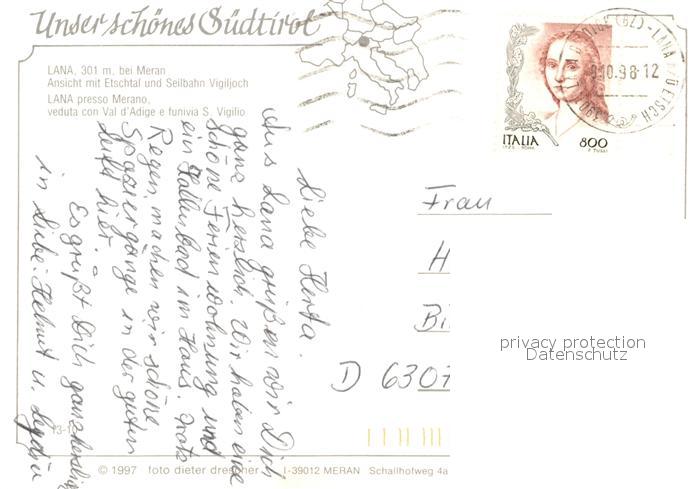 Unser schönes Südtirol
LANA, 301 m, bei Meran
Ansicht mit Etschtal und Seilbahn Vigiljoch
LANA presso Merano,
veduta con Val d'Adige e funivia S. Vigilio
ITALIA 800
9.10.98-12
LANA
Liebe Herta.
Aus Lana grüßen wir Dich
ganz herzlich. Wir haben eine
schöne Ferienwohnung und
ein Hallenbad im Haus. Trotz
Regen machen wir schöne
Spaziergänge in der guten
Luft hier.
Es grüßt Dich ganz herzlich
in Liebe. Helmut u. Lydia
Frau
H
Bi
D 6307
privacy protection
Datenschutz
© 1997 foto dieter drescher I-39012 MERAN Schallhofweg 4a